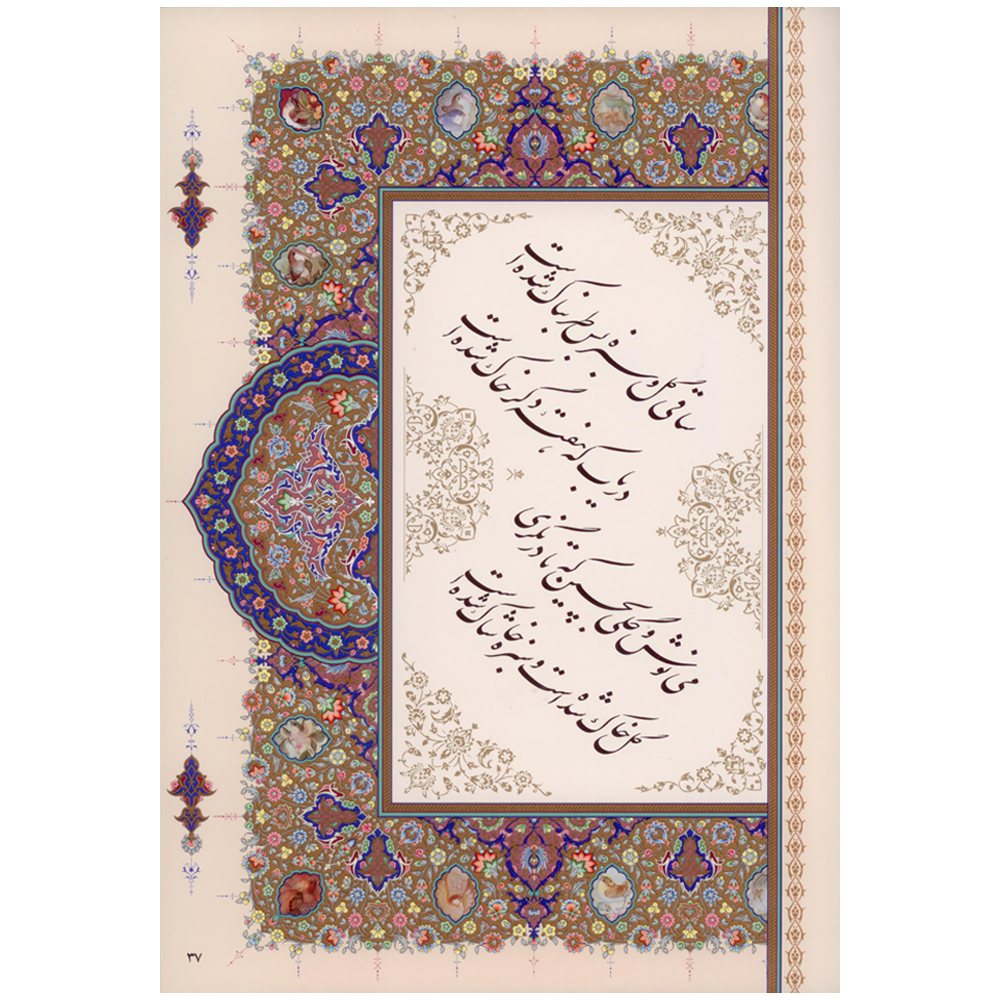 ساقی گل و سبزه بس طربناک شده است
دریاب که هفته دگر خاک شده است
می نوش و گلی بچین که تا درنگری
گل خاک شده است و سبزه خاشاک شده است
۳۷